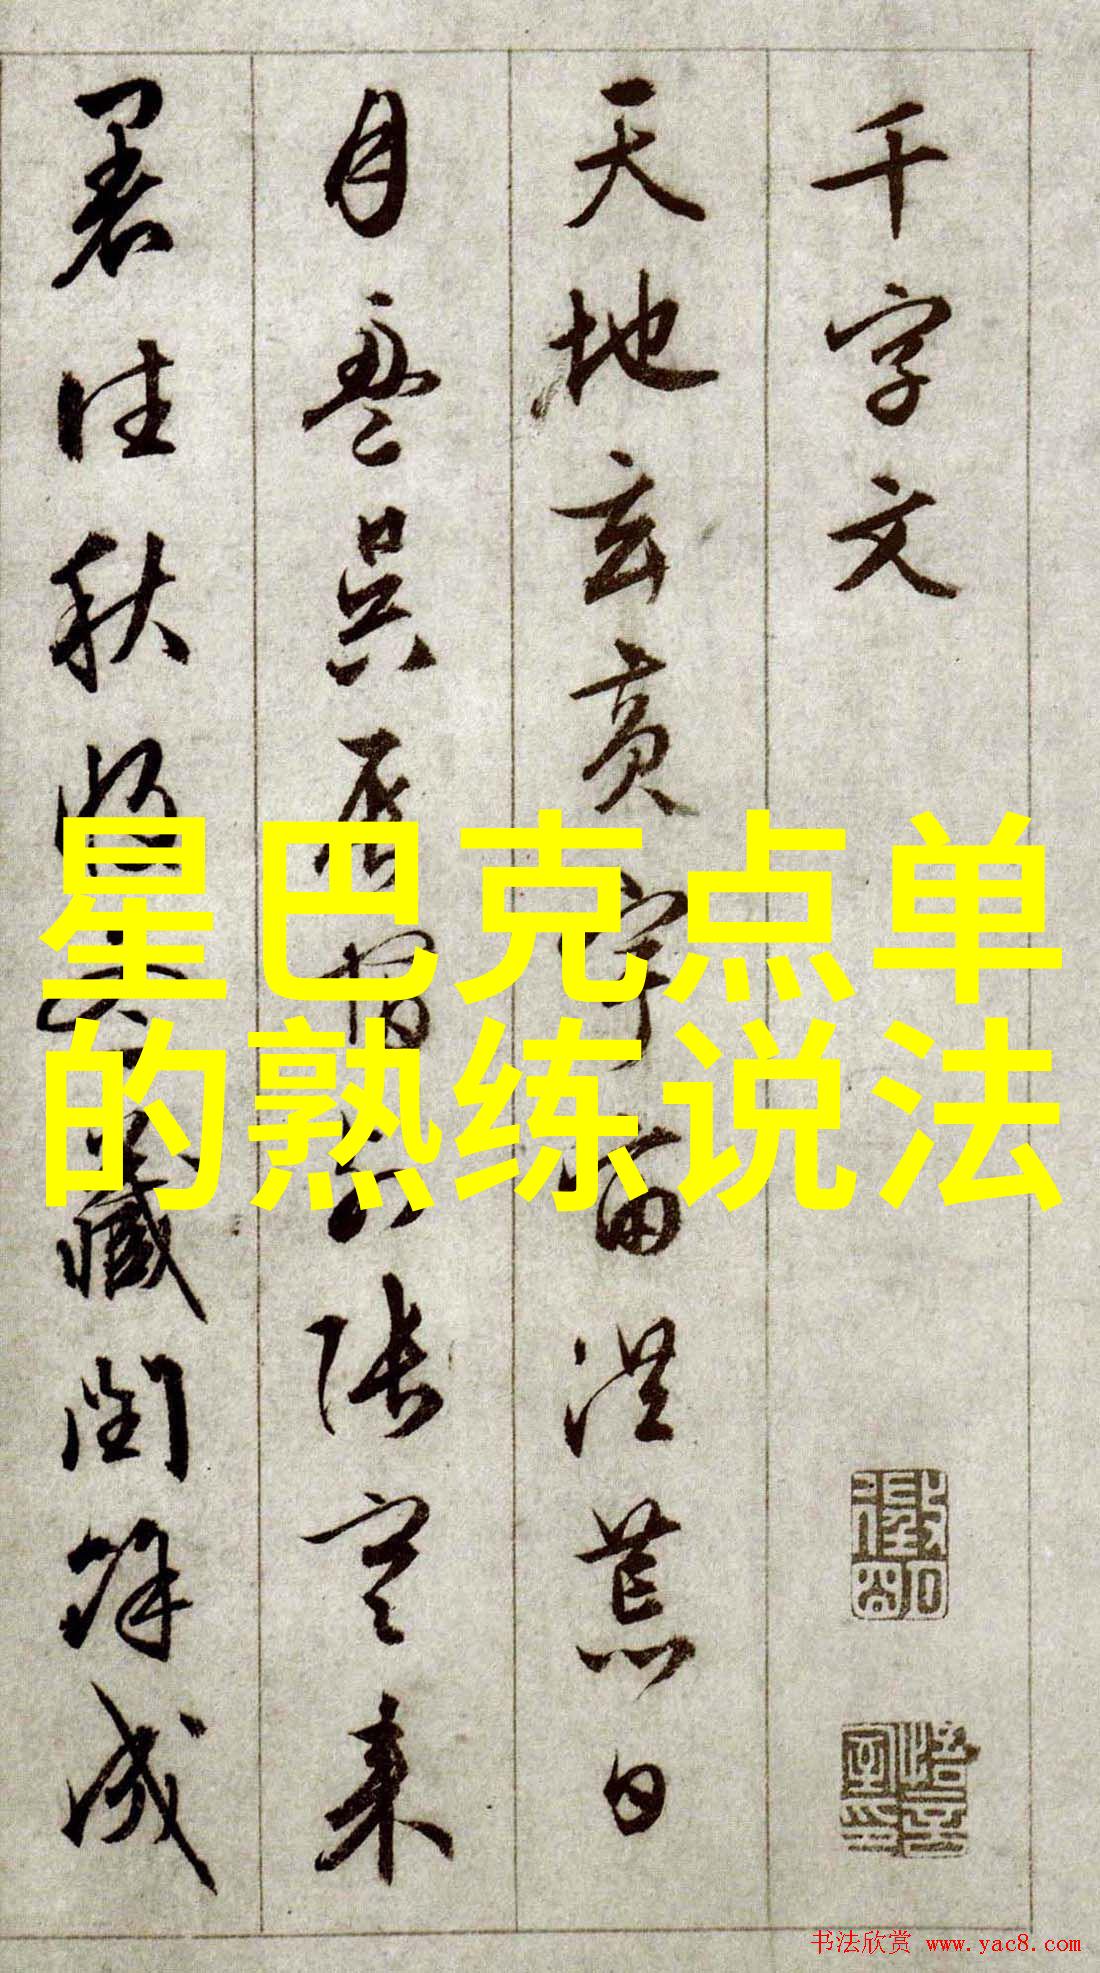 千字文
天地玄黄宇宙洪荒日
月盈昃辰宿列張寒来
暑往秋收冬藏閏餘成
星巴克点单
的熟练说法
书法欣赏 www.yac8.com